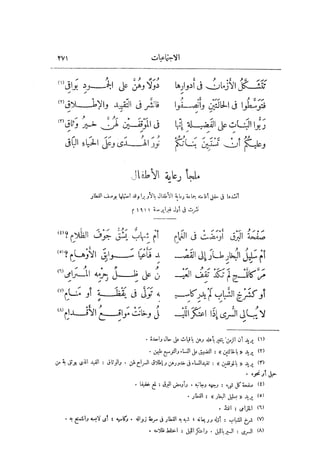 الاجتماعيات ٢٧١
تتشكل الأزمان في أدوارها دولا وهن على الجمود بواقي (١)
فتوسطوا في الحالتين وأنصفوا فالشر في التقييد والإطلاق (٢)
ربوا البنات على الفضيلة إنها في الموقفين لهن خير وثاق (٣)
وعليكم أن تستبين بناتكم نور الهدى وعلى الحياء الباقي
ملجأ رعاية الأطفال
أنشدها في حفل أقامته جماعة رعاية الأطفال بالأوبرا وقد استهلها بوصف القطار
نشرت في أول فبراير سنة ١٩١١ م
صفحة البرق أومضت في الغمام أم شهاب يشق جوف الظلام؟ (٤)
أم سليل البخار طار إلى القصـ ـد فأعيا سوابق الأوهام؟ (٥)
مر كاللمح لم تكد تقف العيـ ـن على ظل جرمه المترامي (٦)
أو كشرخ الشباب لم يدر كاسيـ ـه تولى في يقظة أو منام (٧)
لا يبالي السرى إذا اعتكر الليـ ـل وخانت مواقع الأقدام (٨)
(١) يريد أن الزمن يتغير بأهله وهن باقيات على حال واحدة .
(٢) يريد « بالحالتين » : التضييق على النساء والتوسيع عليهن .
(٣) يريد « بالموقفين » : تقييد النساء في خدورهن وإطلاق السراح لهن . والوثاق : القيد الذي يوثق به من
حبل أو نحوه .
(٤) صفحة كل شيء : وجهه وجانبه . وأومض البرق : لمع خفيفا .
(٥) يريد « بسليل البخار » : القطار .
(٦) المترامي : الممتد .
(٧) شرخ الشباب : أوله وريعانه ؛ شبه به القطار في سرعة زواله . وكاسيه : أي لابسه والمتمتع به .
(٨) السرى : السير بالليل . واعتكر الليل : اختلط ظلامه .